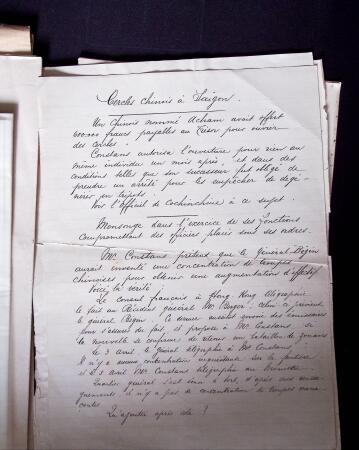 Cercles chinois à Saigon.
Un Chinois nommé Acham avait offert
600.000 francs payables au Trésor pour ouvrir
des cercles.
Constans autorisa l'ouverture pour rien au
même individu un mois après, et dans des
conditions telles que son successeur fut obligé de
prendre un arrêté pour les empêcher de dégé-
nérer en tripots.
Voir l'Officiel de Cochinchine à ce sujet.
Mensonge dans l'exercice de ses fonctions
compromettant des officiers placés sous ses ordres.
Mr Constans prétend que le Général Bégin
aurait inventé une concentration de troupes
chinoises pour obtenir une augmentation d'effectif
Voici la vérité
Le consul français à Hong Kong télégraphie
le fait au Résident général Mr Berger. Celui-ci prévient
le général Bégin. Ce dernier envoie des émissaires
pour s'assurer du fait, et propose à Mr Constans, si
la nouvelle se confirme de lever un bataillon de zouaves
le 3 avril le général télégraphie à Mr Constans
il n'y a aucune concentration inquiétante sur la frontière
et le 5 avril Mr Constans télégraphie au Ministre
général s'est ému à tort, d'après mes rensei-
gnements, il n'y a pas de concentration de troupes
Qu'ajouter après cela ?